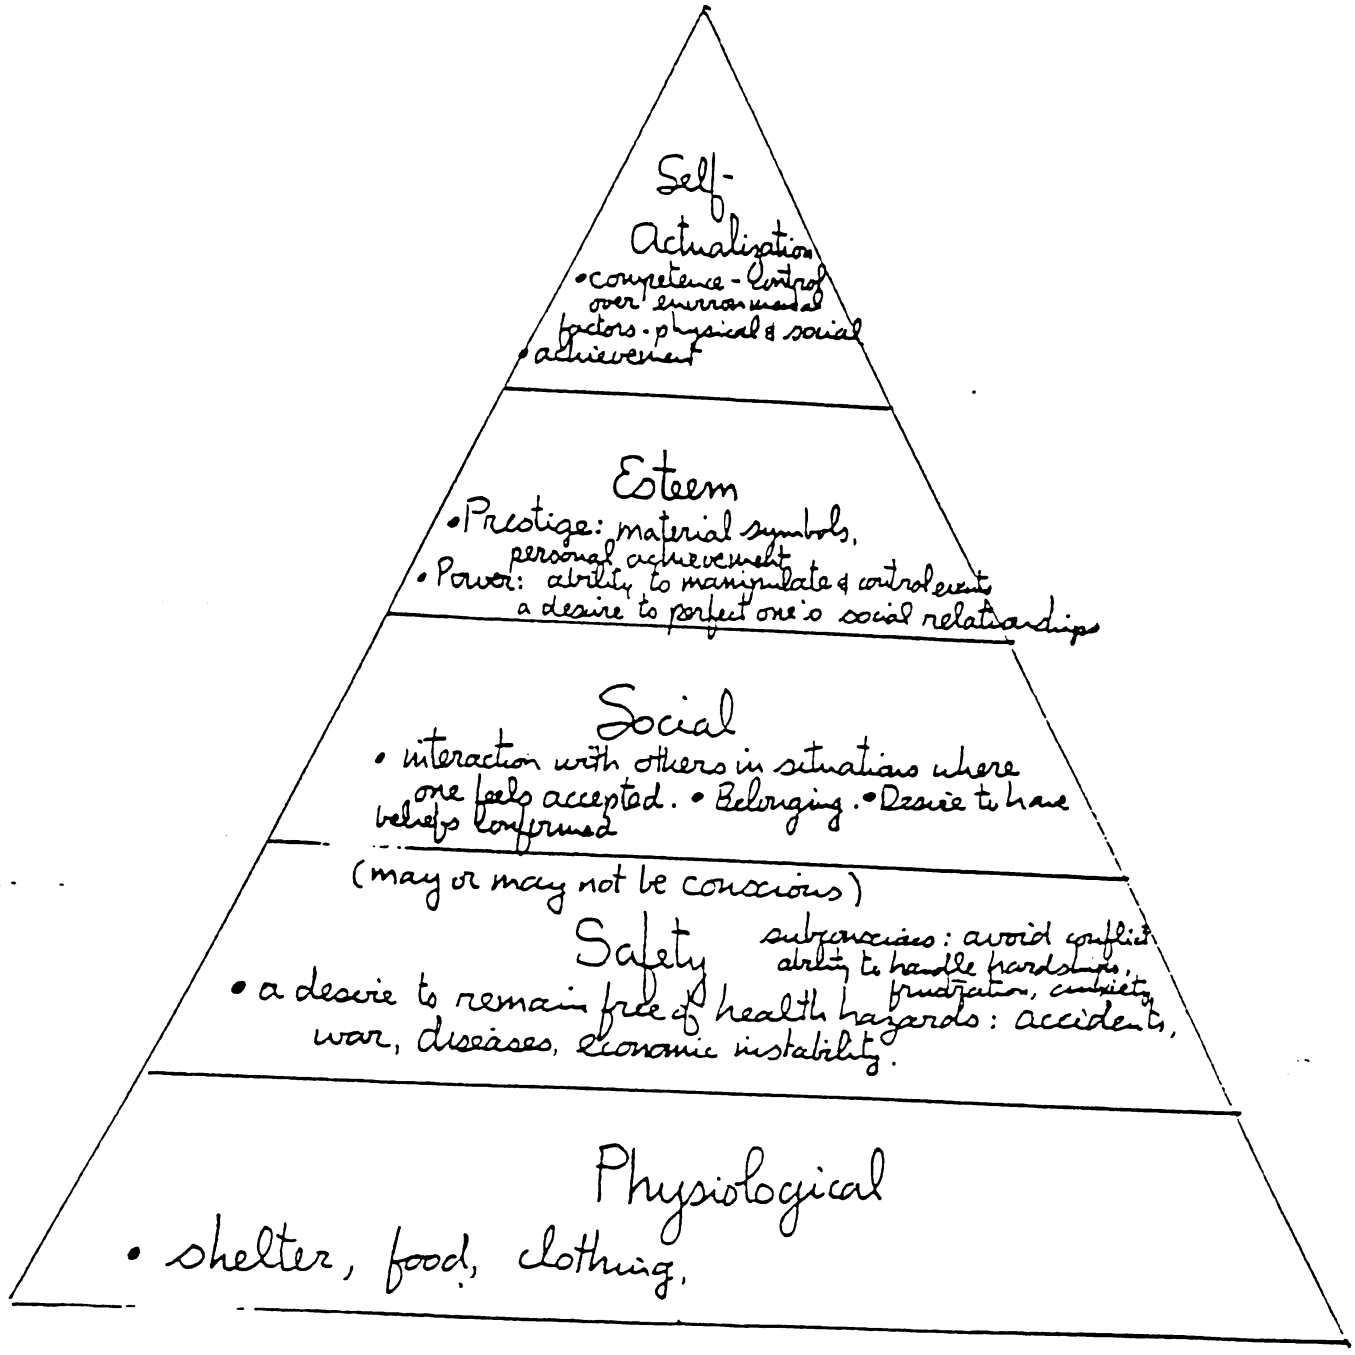 Self-
Actualization
• competence - control
over environmental
factors. physical & social
• achievement
Esteem
• Prestige: material symbols,
personal achievement
• Power: ability to manipulate & control events
a desire to perfect one's social relationships
Social
• interaction with others in situations where
one feels accepted. • Belonging. • Desire to have
beliefs confirmed
(may or may not be conscious)
Safety
subconscious: avoid conflict
ability to handle hardships,
frustration, anxiety
• a desire to remain free of health hazards: accidents,
war, diseases, economic instability.
Physiological
• shelter, food, clothing,